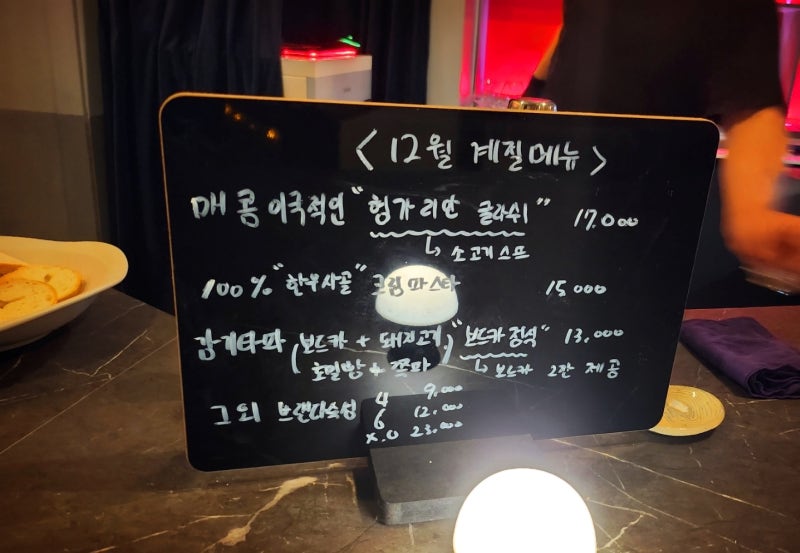 <12월 계절메뉴>
매콤 이국적인 "헝가리안 굴라쉬" 17.000
↳ 소고기스프
100% "한우사골" 크림파스타 15000
감기타파 (보드카 + 돼지고기 "보드카 정식" 13.000
호밀빵 + 쪽파) ↳ 보드카 2잔 제공
그외 브랜디숙성 4 9.000
6 12.000
X.O 23.000